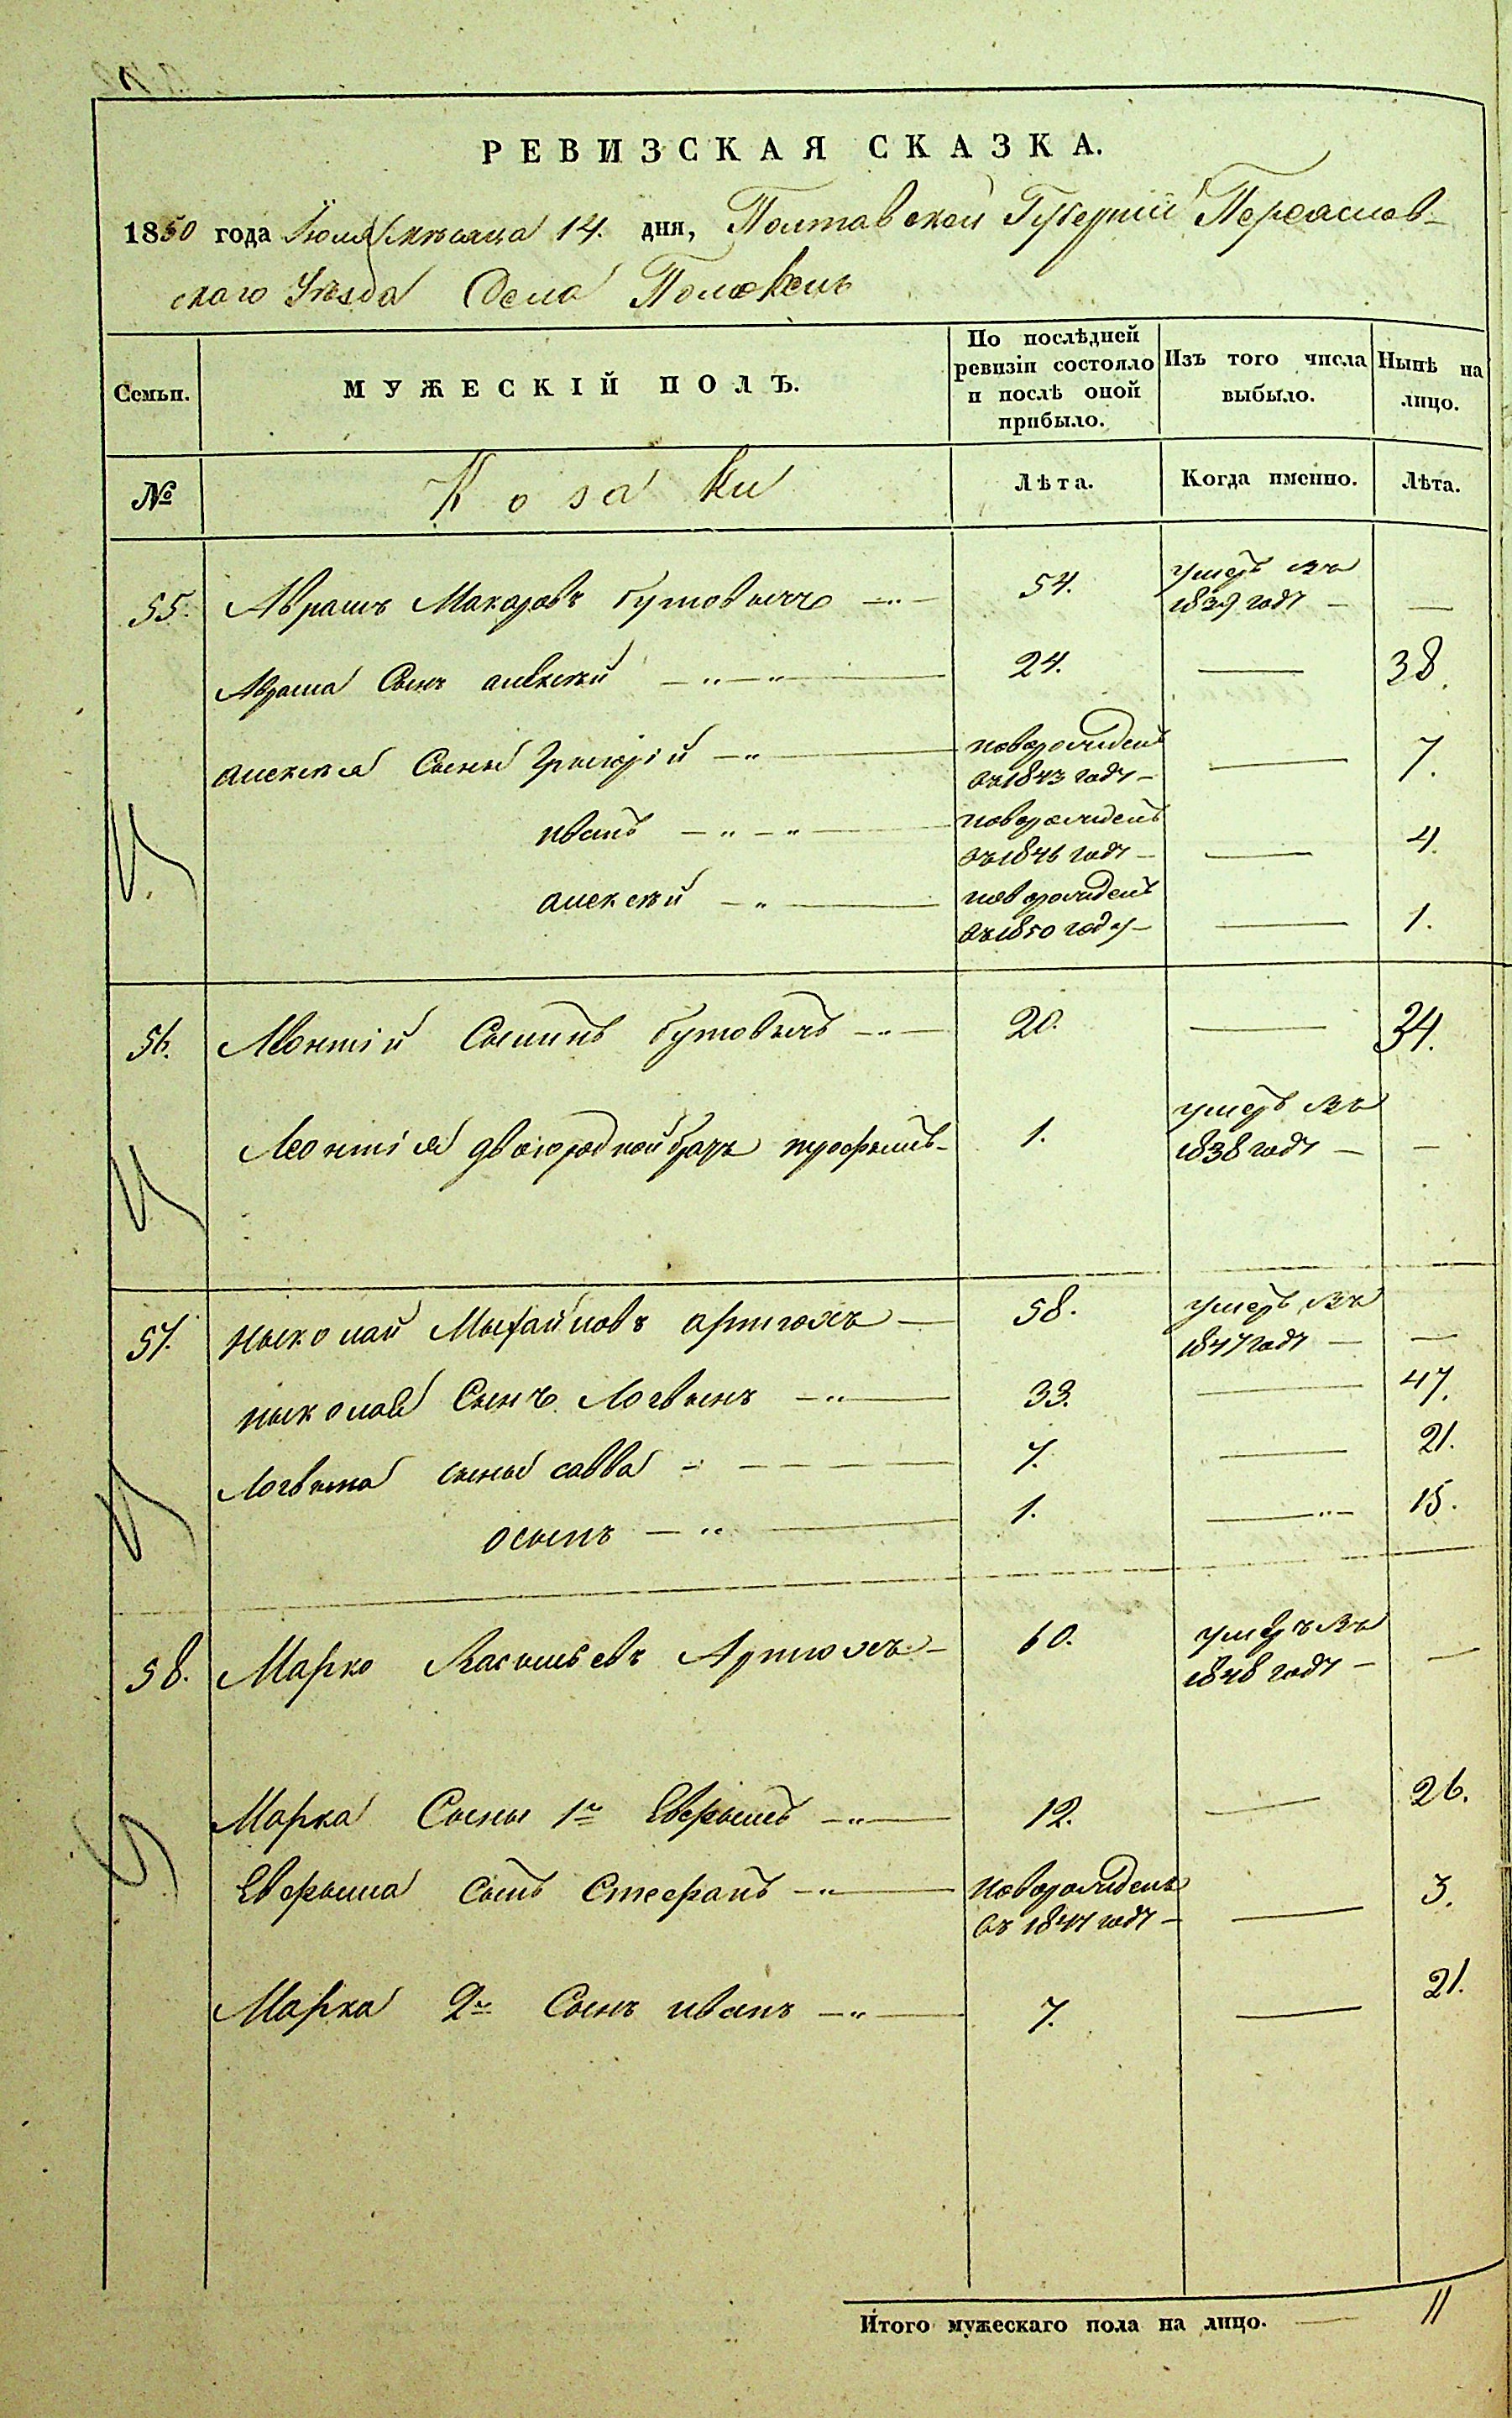 РЕВИЗСКАЯ СКАЗКА.
1850 года Июля месяца 14. дня, Полтавской Губернии Переяслов-
скаго Уѣзда Села Положень
Семьи.
МУЖЕСКІЙ ПОЛЪ.
По послѣдней
ревизіи состояло
и послѣ оной
прибыло.
Изъ того числа
выбыло.
Нынѣ на
лицо.
№
Козаки
Лѣта.
Когда именно.
Лѣта.
55. Аврамъ Макаровъ Бутовычъ 54. умеръ въ
1839 году —
Аврама Сынъ алексѣй 24. — 38.
алексѣя Сыны Григорій новорожденъ — 7.
въ 1843 году
иванъ новорожденъ — 4.
въ 1846 году
алексѣй новорожденъ — 1.
въ 1850 году
56. Леонтій Сыминъ Бутовычъ 20. — 34.
Леонтія двоюродной братъ трофымъ 1. умеръ въ
1838 году —
57. Ныколай Мыхайловъ артюхъ 58. умеръ въ
1847 году —
ныколая Сынъ Логвынъ 33. — 47.
Логвына сыны савва 7. — 21.
осыпъ 1. — 15.
58. Марко Васыльевъ Артюхъ 60. умеръ въ
1848 году —
Марка Сыны 1й Ефрымъ 12. — 26.
Ефрыма сынъ Стефанъ новорожденъ — 3.
въ 1847 году
Марка 2й Сынъ иванъ 7. — 21.
Итого мужескаго пола на лицо. — 11